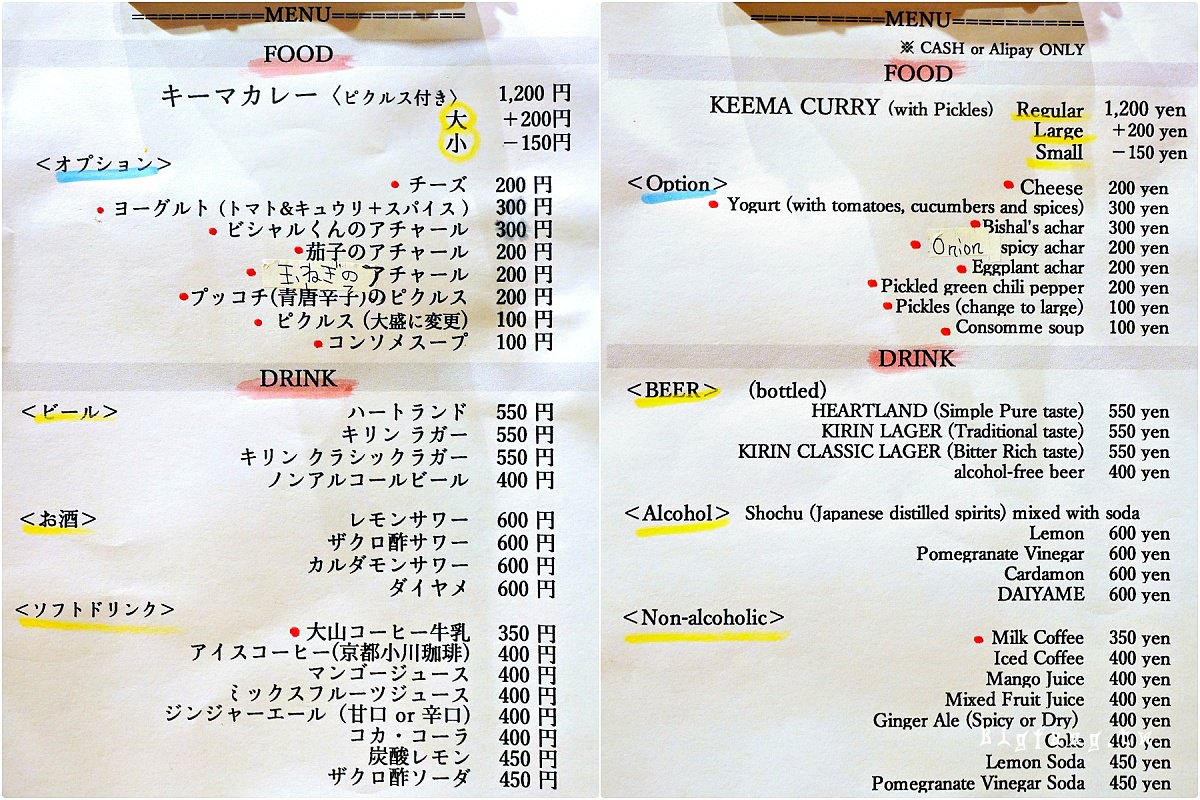 ==================MENU==================
FOOD
キーマカレー〈ピクルス付き〉 1,200 円
大 +200円
小 −150円
<オプション>
チーズ 200 円
ヨーグルト (トマト&キュウリ+スパイス) 300 円
ビシャルくんのアチャール 300 円
茄子のアチャール 200 円
玉ねぎのアチャール 200 円
プッコチ(青唐辛子)のピクルス 200 円
ピクルス (大盛に変更) 100 円
コンソメスープ 100 円
DRINK
<ビール> ハートランド 550 円
キリン ラガー 550 円
キリン クラシックラガー 550 円
ノンアルコールビール 400 円
<お酒> レモンサワー 600 円
ザクロ酢サワー 600 円
カルダモンサワー 600 円
ダイヤメ 600 円
<ソフトドリンク>
大山コーヒー牛乳 350 円
アイスコーヒー(京都小川珈琲) 400 円
マンゴージュース 400 円
ミックスフルーツジュース 400 円
ジンジャーエール (甘口 or 辛口) 400 円
コカ・コーラ 400 円
炭酸レモン 450 円
ザクロ酢ソーダ 450 円
==================MENU==================
※ CASH or Alipay ONLY
FOOD
KEEMA CURRY (with Pickles) Regular 1,200 yen
Large +200 yen
Small −150 yen
<Option>
Cheese 200 yen
Yogurt (with tomatoes, cucumbers and spices) 300 yen
Bishal's achar 300 yen
Onion spicy achar 200 yen
Eggplant achar 200 yen
Pickled green chili pepper 200 yen
Pickles (change to large) 100 yen
Consomme soup 100 yen
DRINK
<BEER> (bottled)
HEARTLAND (Simple Pure taste) 550 yen
KIRIN LAGER (Traditional taste) 550 yen
KIRIN CLASSIC LAGER (Bitter Rich taste) 550 yen
alcohol-free beer 400 yen
<Alcohol> Shochu (Japanese distilled spirits) mixed with soda
Lemon 600 yen
Pomegranate Vinegar 600 yen
Cardamon 600 yen
DAIYAME 600 yen
<Non-alcoholic>
Milk Coffee 350 yen
Iced Coffee 400 yen
Mango Juice 400 yen
Mixed Fruit Juice 400 yen
Ginger Ale (Spicy or Dry) 400 yen
Coke 400 yen
Lemon Soda 450 yen
Pomegranate Vinegar Soda 450 yen